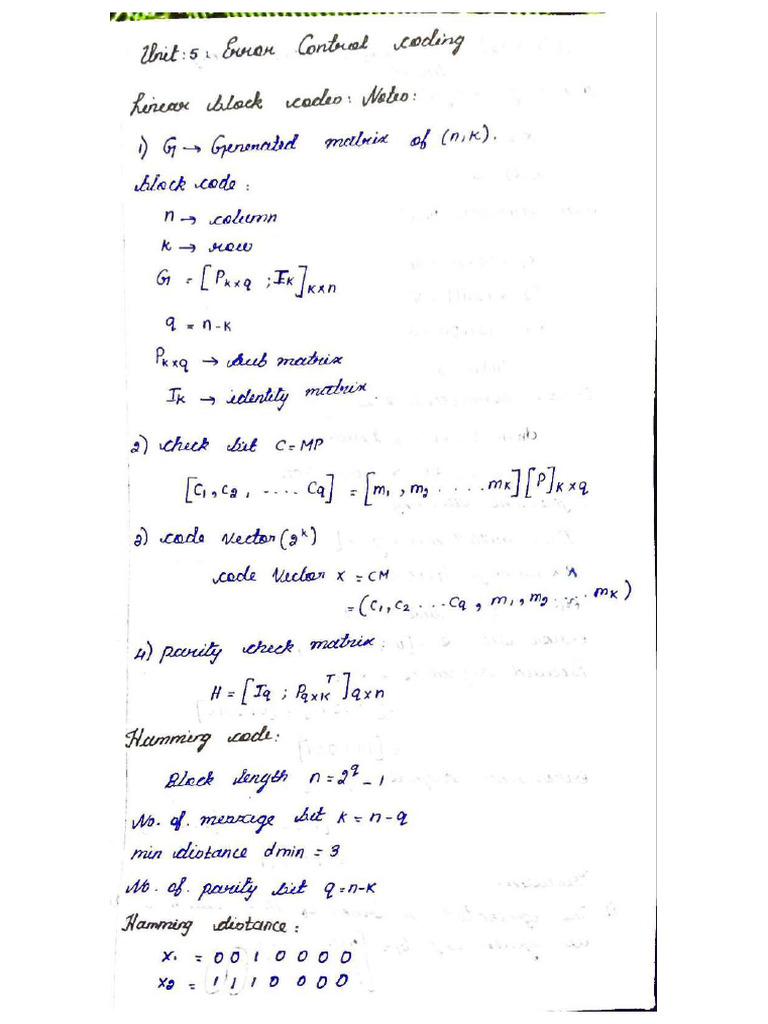 Unit: 5: Error Control coding
Linear block codes: Notes:
1) G → Generated matrix of (n, k).
block code:
n → column
k → row
G = [P_{k×q} ; I_k]_{k×n}
q = n-k
P_{k×q} → sub matrix
I_k → identity matrix
2) check bit C = MP
[C_1, C_2, .... C_q] = [m_1, m_2 ..... m_k] [P]_{k×q}
3) code vector (2^k)
code vector x = CM
= (C_1, C_2 ... C_q, m_1, m_2 .... m_k)
4) parity check matrix
H = [I_q ; P_{q×k}^T]_{q×n}
Hamming code:
Block length n = 2^q - 1
No. of. message bit k = n - q
min distance dmin = 3
No. of. parity bit q = n-k
Hamming distance:
x_1 = 0 0 1 0 0 0 0
x_2 = 1 1 1 0 0 0 0